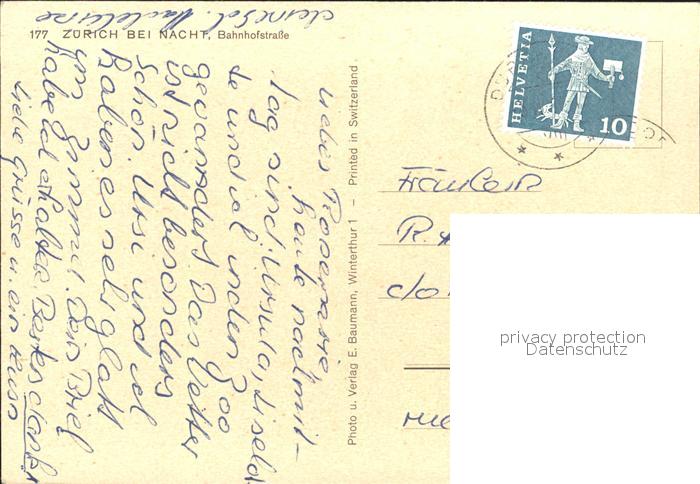 177 ZÜRICH BEI NACHT, Bahnhofstraße
Liebes Rosemarie
heute nachmit-
tag sind Ursula, Lisela
te und ich in den Zoo
gewandert. Das Wetter
ist nicht besonders
schön. Ursi und ich
haben es sehr glatt
zusammen. Dein Brief
habe ich erhalten. Besten dank
Liebe Grüsse u. ein Kuss
deine Madeleine
Photo u. Verlag E. Baumann, Winterthur 1 – Printed in Switzerland
HELVETIA
10
Fräulein
R.
c/o
privacy protection
Datenschutz